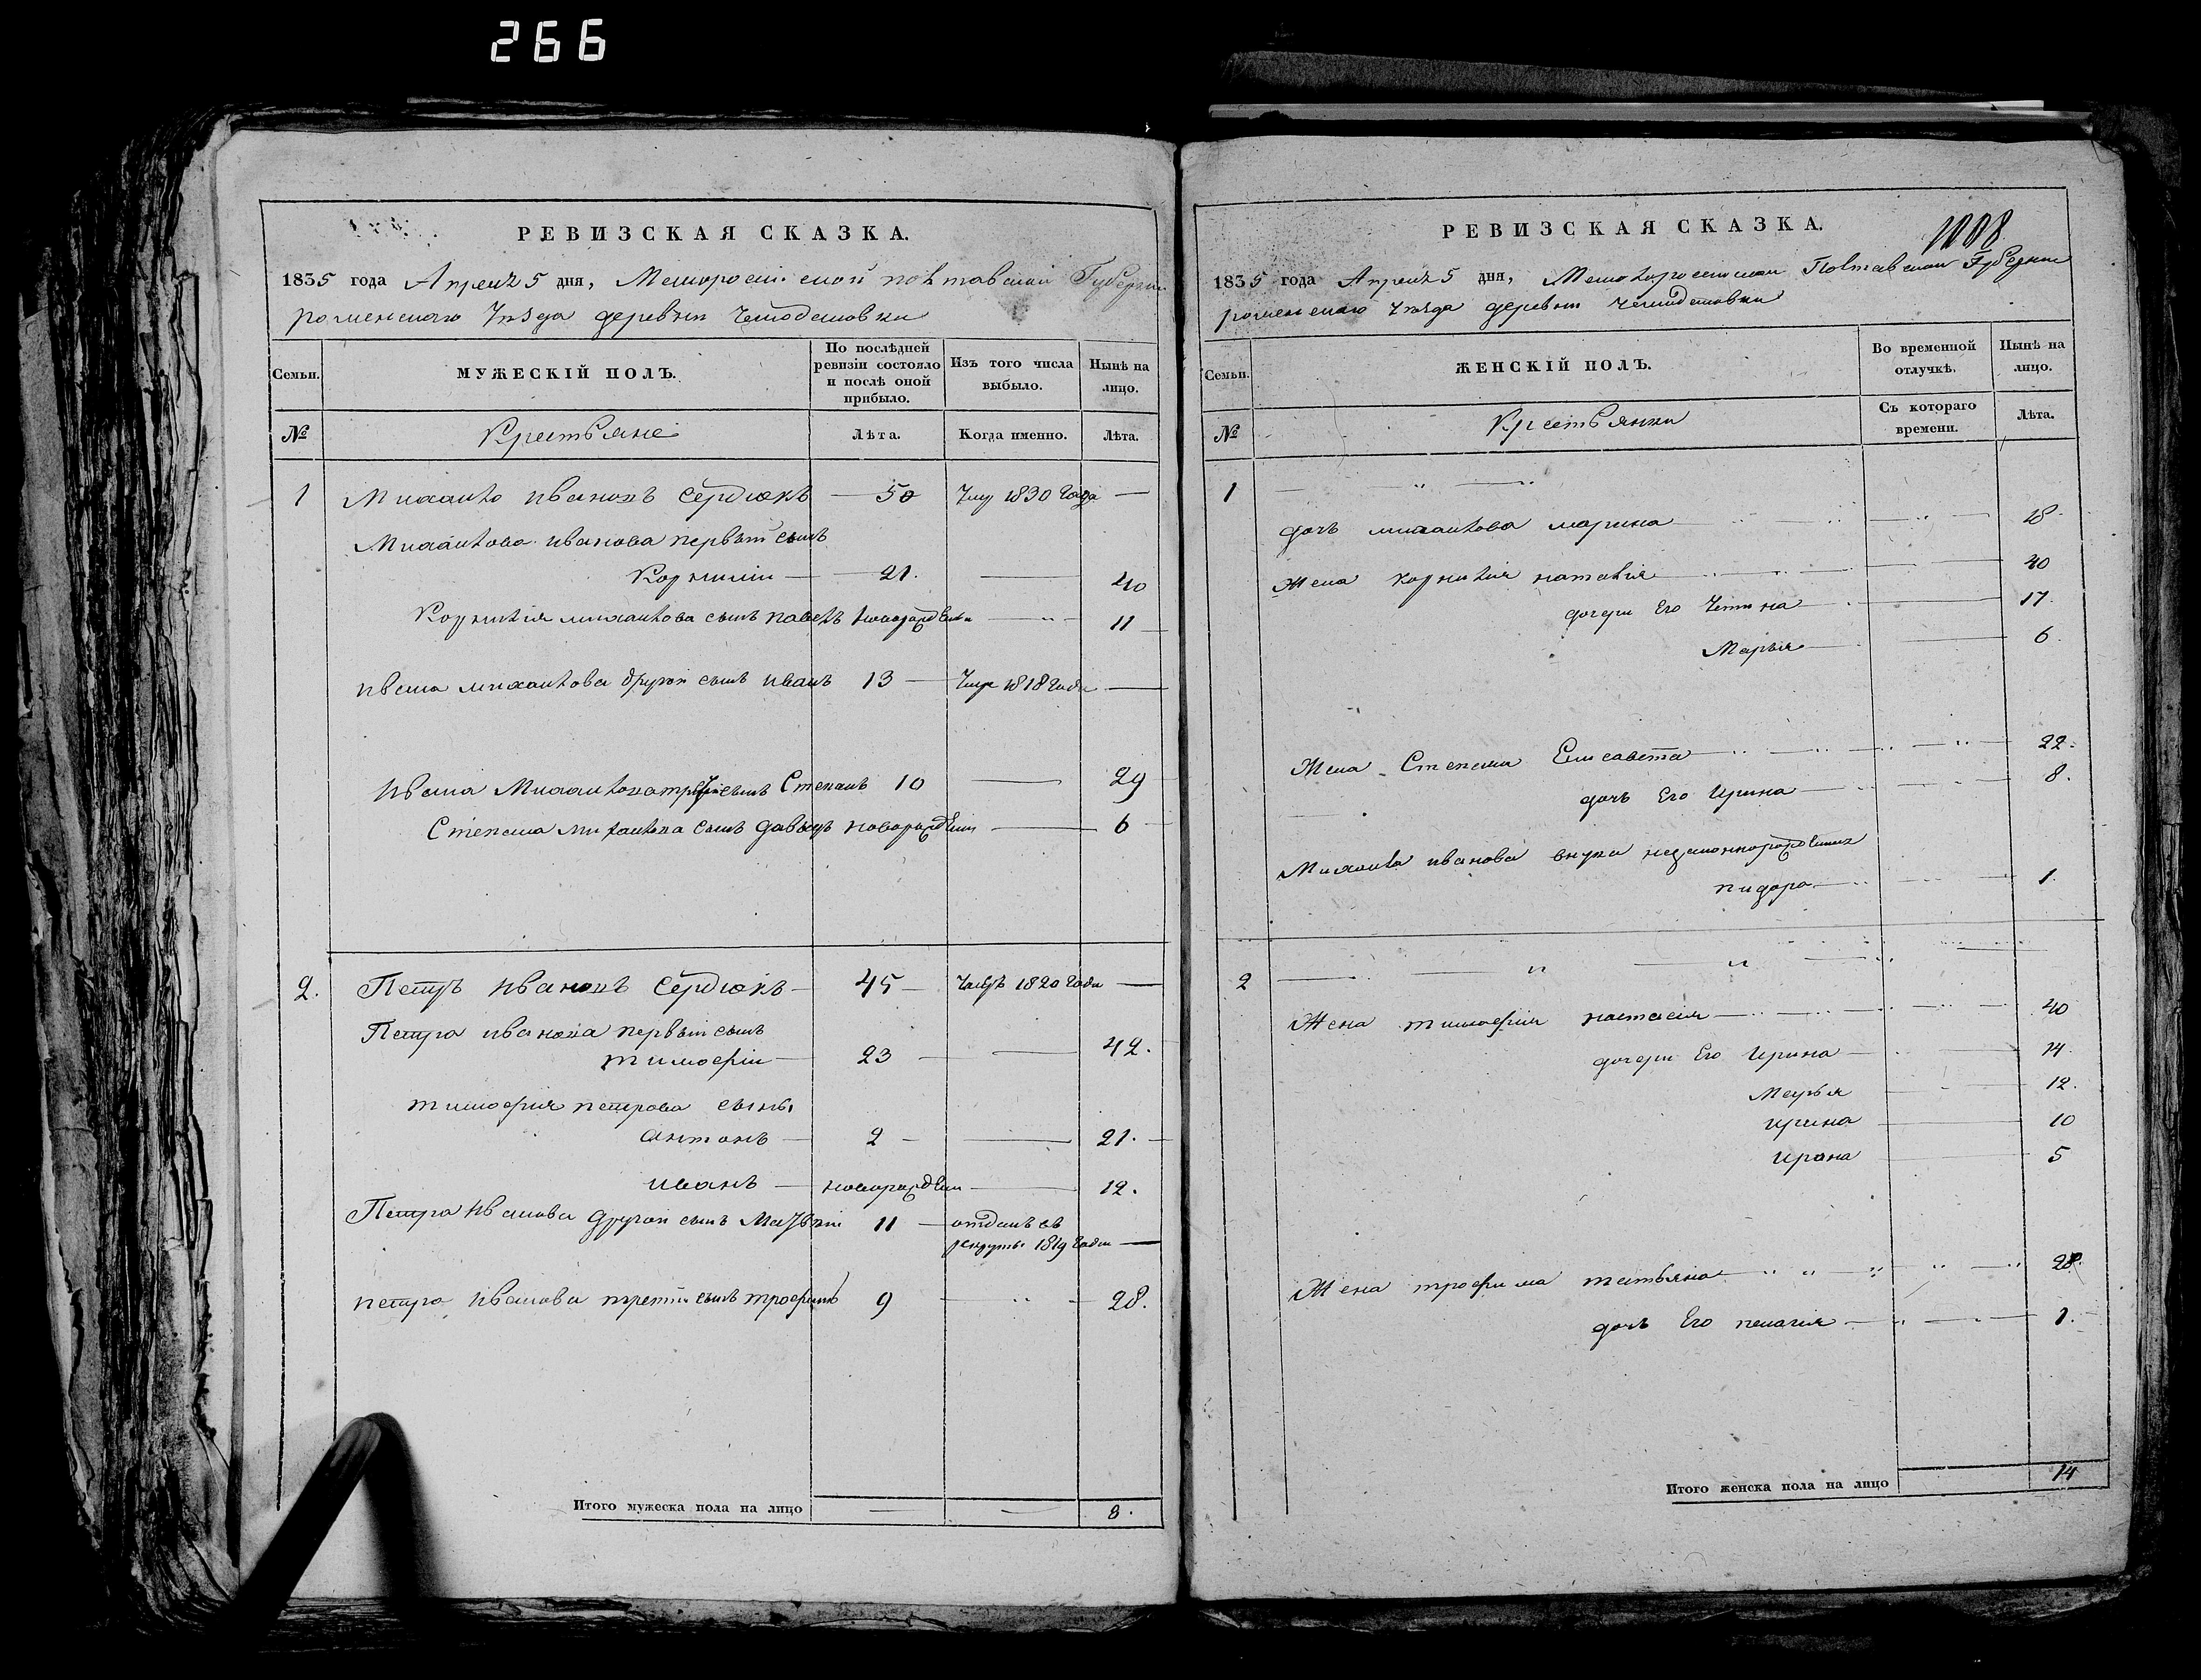 266
РЕВИЗСКАЯ СКАЗКА.
1835 года Апреля 5 дня, Малоросійской полтавской Губерніи
роменского Уѣзда деревни Чемодановки
Семьи.
МУЖЕСКІЙ ПОЛЪ.
По послѣдней ревизіи состояло и послѣ оной прибыло.
Изъ того числа выбыло.
Нынѣ на лицо.
№
Крестьяне
Лѣта.
Когда именно.
Лѣта.
1 Михайло ивановъ Сердюкъ 50 Умер 1830 года
Михайлова иванова первый сынъ
Корнилій 21. 40
Корнилія михайлова сынъ павелъ новорожденъ 11
ивана михайлова другой сынъ иванъ 13 Умре 1818 года
ивана Михайлова третій сынъ Степанъ 10 29
Степана михайлова сынъ давыдъ новорожденъ 6
2. Петръ ивановъ Сердюкъ 45 Умеръ 1820 года
Петра иванова первый сынъ
тимофій 23 42.
тимофия петрова сыны
антонъ 2 21.
иванъ новорожден 12.
Петра иванова другой сынъ Матвѣй 11 отданъ въ
рекруты 1819 года
петра иванова третій сынъ трофимъ 9 28.
Итого мужеска пола на лицо 8.
РЕВИЗСКАЯ СКАЗКА.
1008
1835 года Апреля 5 дня, Малоросійской Полтавской Губерніи
роменского Уѣзда деревни Чемодановки
Семьи.
ЖЕНСКІЙ ПОЛЪ.
Во временной отлучкѣ.
Нынѣ на лицо.
№
Крестьянки
Съ котораго времени.
Лѣта.
1
дочь михайлова марина 18
Жена корнилія наталія 40
дочери Его 17.
Марья 6.
Жена Степана Елисавета 22.
дочь Его Ирина 8.
Михайла иванова внука незаконнорожденная
пидора 1.
2
Жена тимофія настасія 40
дочери Его Ирина 14.
Марья 12.
ирина 10
ирина 5
Жена трофима татьяна 28.
дочь Его пелагія 1.
Итого женска пола на лицо 14